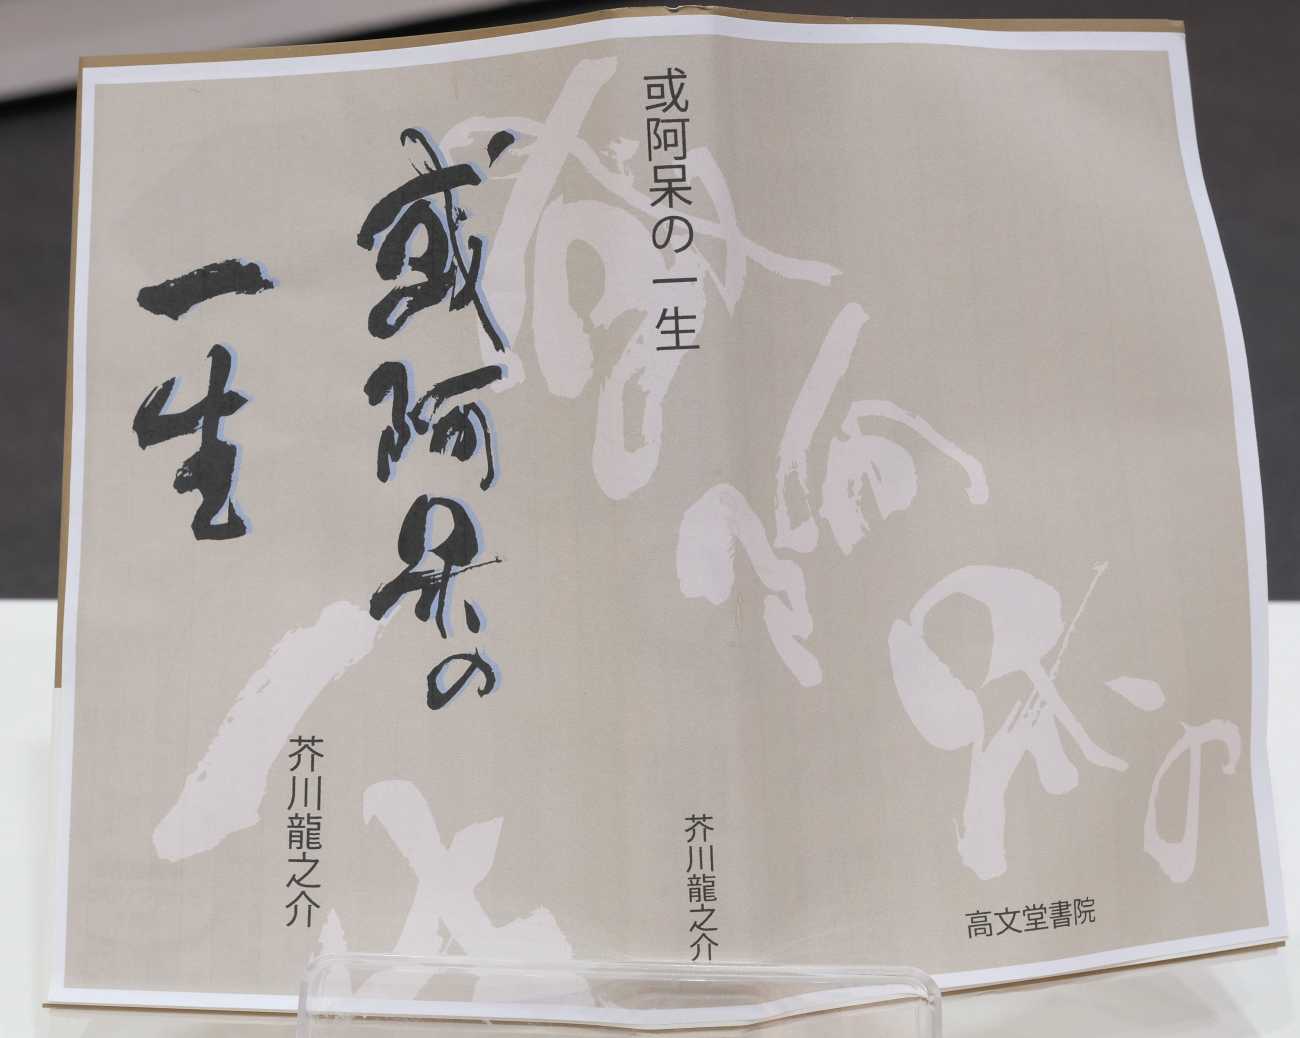 或阿呆の
一生
芥川龍之介
或阿呆の一生
芥川龍之介
高文堂書院